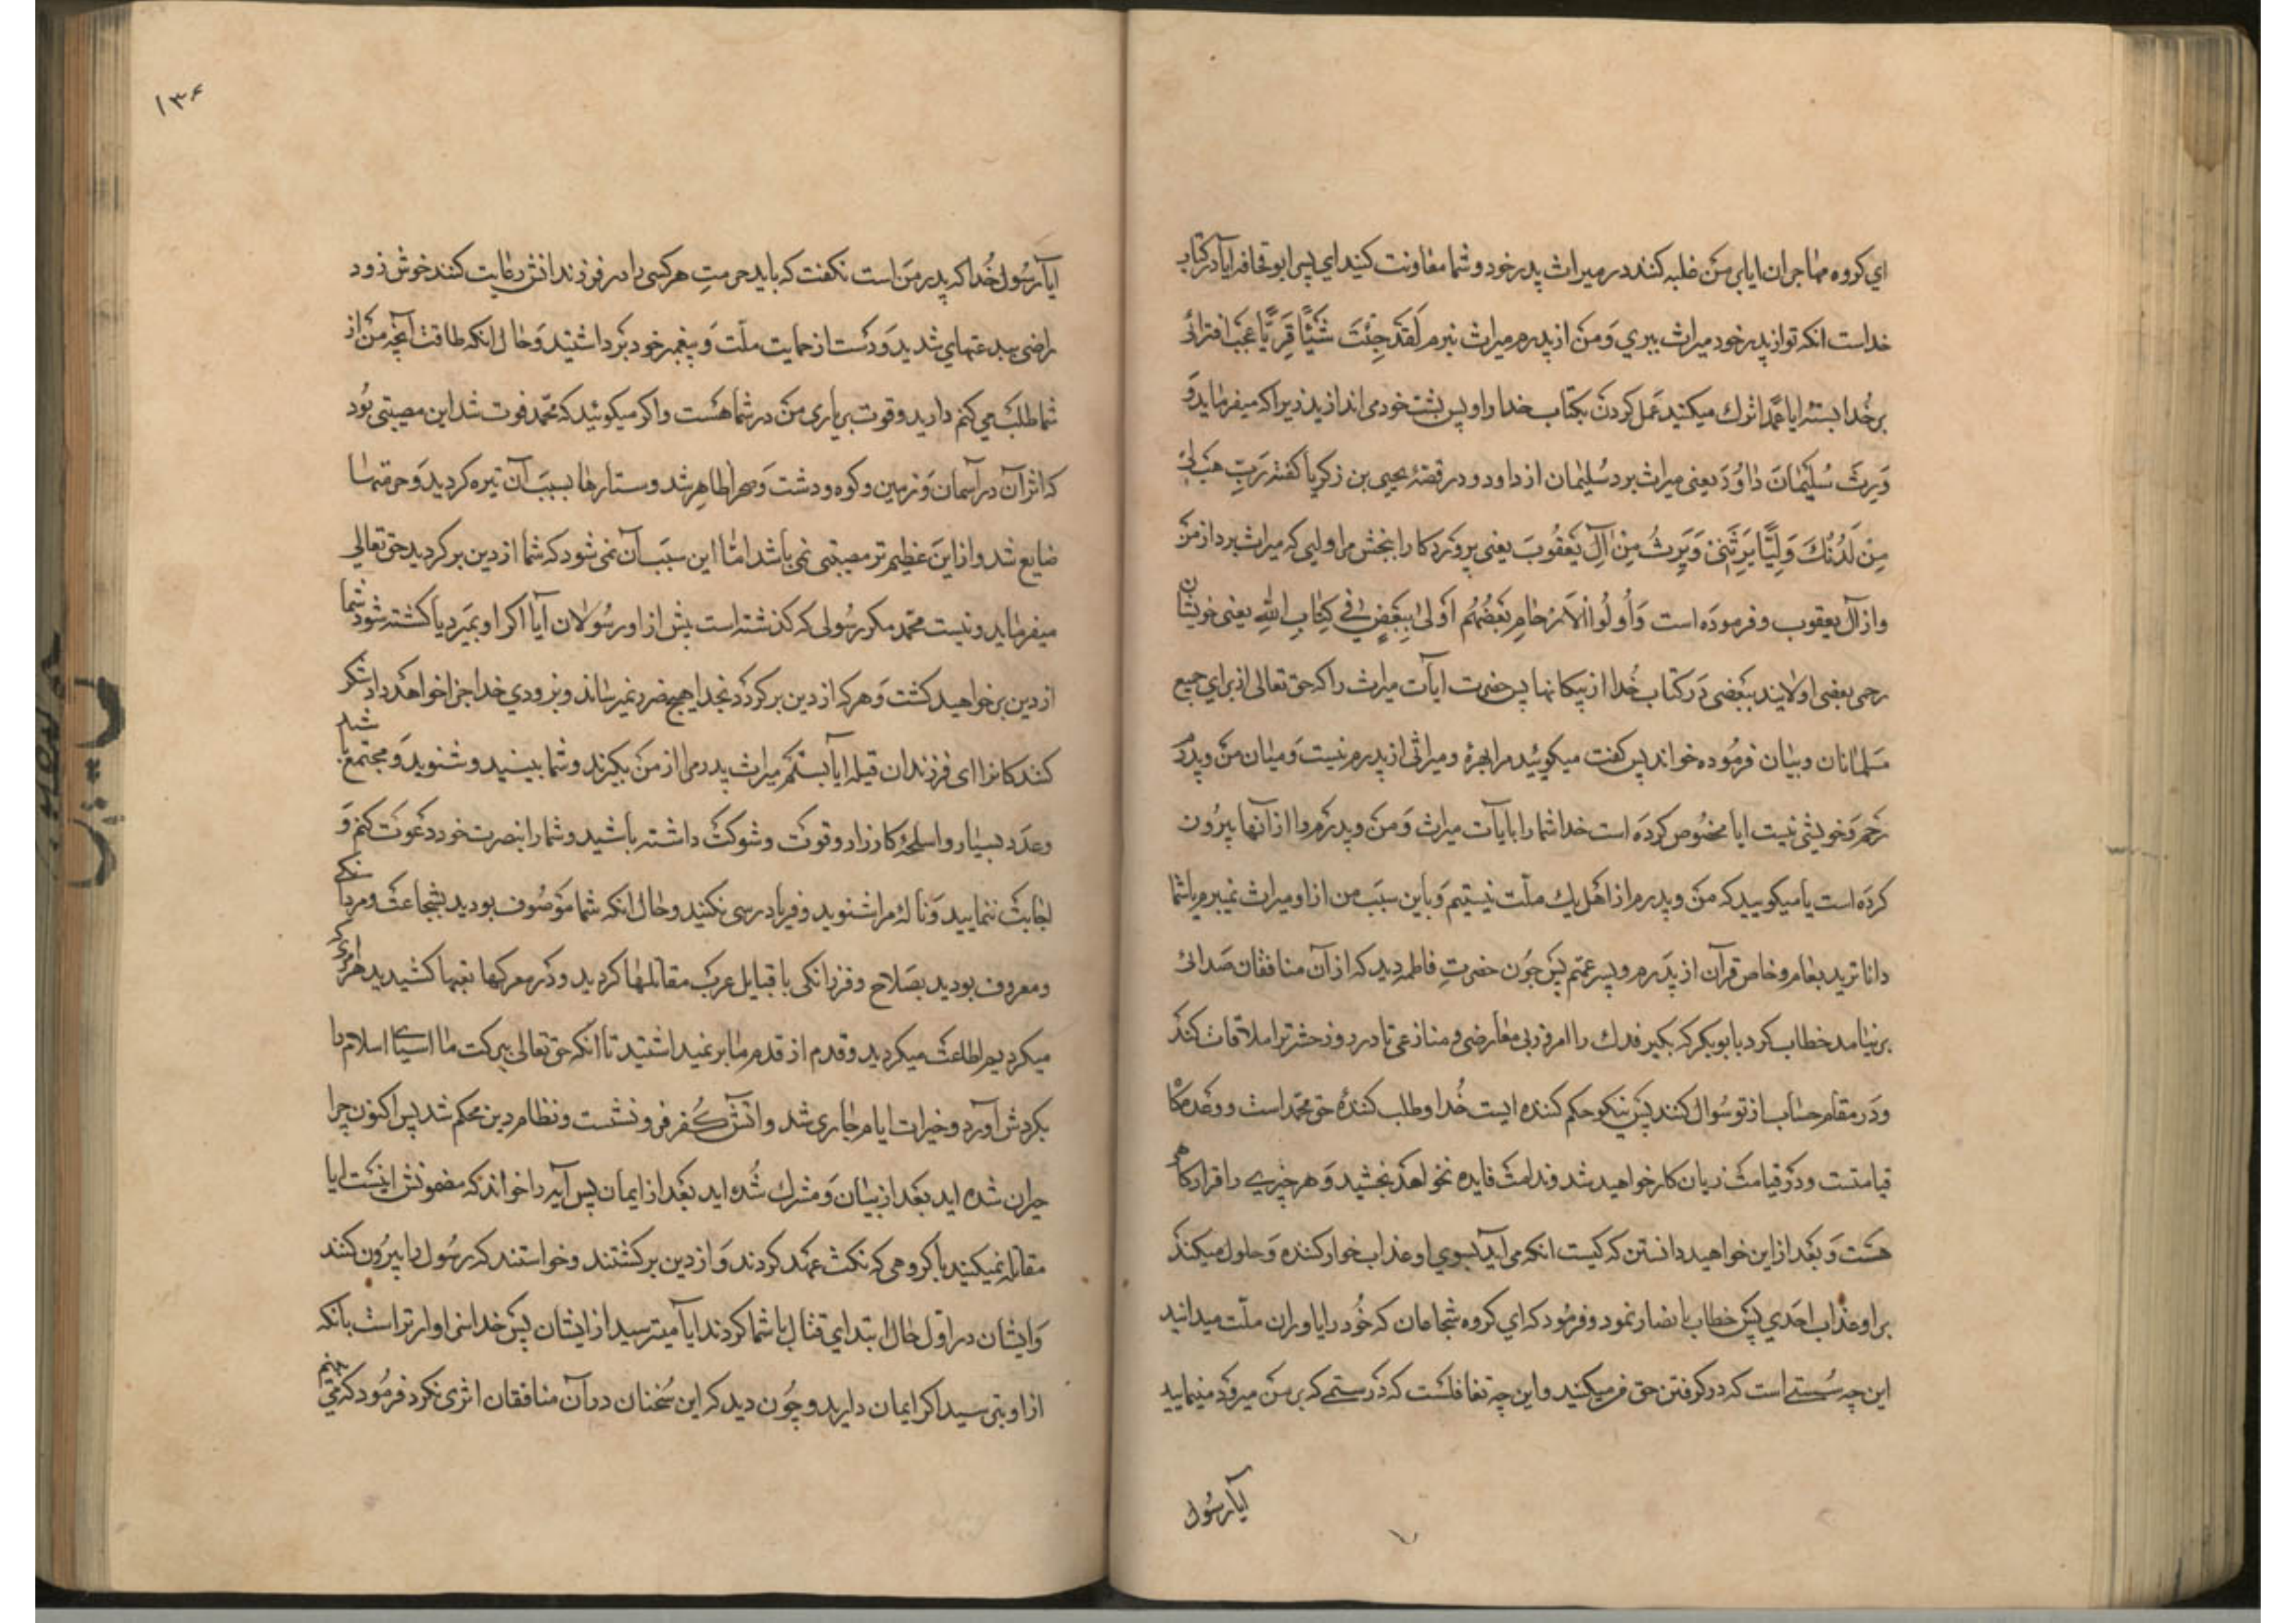 اي کروه مهاجران ايا بي من غلبه کنند در ميراث پدر خود و شما معاونت کنيد اي پسر ابو قحافه ايا در کتاب
خداست انکه تو از پدر خود ميراث ببري وَ من از پدرم ميراث نبرم لَقَدْ جِئْتَ شَيْئًا فَرِيًّا عجَب افترائی
بر خُدا بسته ايا عمدًا ترك ميکنيد عَمل کردن بکتاب خدا را و پس پشت خود مي اندازيد زيرا که ميفرمايد وَ
وَرِثَ سُلَيْمَانُ دَاوُدَ يعنی ميراث برد سُليمان از داود و در قصۀ يحيی بن زکريا کفته رَبِّ هَبْ لِي
مِنْ لَدُنْكَ وَلِيًّا يَرِثُنِي وَيَرِثُ مِنْ آلِ يَعْقُوبَ يعنی پروردکارا ببخش مرا وليی که ميراث برد از من
و از آل يعقوب و فرموده است وَأُولُوا الْأَرْحَامِ بَعْضُهُمْ أَوْلَى بِبَعْضٍ فِي كِتَابِ اللهِ يعنی خويشان
رحمی بعضی اولايند ببعضی در کتاب خُدا از بيکانها پس حضرت ايآت ميراث را که حق تعالی از براي جميع
مسلمانان و بيان فرموده خواند پس کفت ميکوئيد مرا بهرۀ و ميراثی از پدرم نيست وَ ميان من و پدرم
رحم وَ خويشی نيست ايا مخصُوص کرده است خدا شما را بايآت ميراث وَ من و پدرم را از آنها بيرُون
کرده است يا ميکوييد که من و پدرم از اهل يك ملّت نيستيم وَ باين سبَب من از او ميراث نميبرم يا شما
داناتريد بعام و خاص قرآن از پَدرم و پسر عمّم پس چُون حضرتِ فاطمه ديد که از آن منافقان صَدائی
بر نيامد خطاب کرد با بوبکر که بکير فدك را امروز بی معارضی و منازعی تا در روز حشر ترا ملاقات کند
و دَر مقام حسَاب از تو سُوال کنند پس نيکو حکم کننده ايست خُدا و طلب کنندۀ حق محمّد است و وعده کاه
قيامتست و دَر قيامت زيان کار خواهيد شد و ندامت فايده نخواهد بخشيد وَ هر چيزی را قرارکاهی
هست وَ بعَد از اين خواهيد دانستن که کيست انکه می آيد بسوي او عذاب خوار کننده وَ حلول ميکند
بر او عذاب ابَدي پس خطاب بانصار نمود و فرمُود که اي کروه شجاعان که خُود را ياوران ملّت ميدانيد
اين چه سُستی است که در کرفتن حق من ميکنيد و اين چه تغافلست که در ستمی که بر من ميرود مينماييد
ايآ رسُول
۱۳۶
ايآ رسُول خُدا که پدر من است نکفت که بايد حرمتِ هر کسی را در فرزندانش رعايت کنند خوش زود
راضی ببدعتهاي شديد وَ دست از حمايت ملّت وَ پيغمبر خود برداشتيد وَ حال انکه طاقت آنچه من از
شما طلب می کنم داريد و قوت بر ياری من در شما هست و اکر ميکوئيد که محمّد فوت شد اين مصيبتی بُود
که اثر آن در آسمان وَ زمين و کوه و دشت وَ صحرا ظاهر شد و ستارها بسبَب آن تيره کرديد وَ حرمتها
ضايع شد و از اين عظيم تر مصيبتی نمی باشد امّا اين سبَب آن نمی شود که شما از دين بر کرديد حق تعالی
ميفرمايد و نيست محمّد مکر رسُولی که کذشته است پيش از او رسُولان آيا اکر او بميرد يا کشته شود شما
از دين بر خواهيد کشت وَ هر که از دين بر کردد بخدا هيچ ضرر نميرساند و بزودي خدا جزا خواهد داد شکر
کنندکانرا ای فرزندان قيله ايا بستم ميراث پدر مرا از من بکيرند و شما ببينيد و شنويد وَ مجتمع شده
وعدَد بسيار و اسلحۀ کارزار و قوت و شوکت داشته باشيد و شما را بنصرت خود دعوت کنم وَ
اجابت ننماييد وَ نالۀ مرا شنويد و فرياد رسی نکنيد و حال انکه شما موصُوف بوديد بشجاعت و مردانکی
و معروف بوديد بصَلاح و فرزانکی با قبايل عرب مقاتلها کرديد و در معرکها تعبها کشيديد هر امری که
ميکرديم اطاعت ميکرديد و قدم از قدم ما بر نميداشتيد تا انکه حق تعالی ببرکت ما اسيای اسلام را
بکردش آورد و خيرات ايام جاری شد و اتش کُفر فرو نشست و نظام دين محکم شد پس اکنون چرا
حيران شده ايد بعد از بيان وَ مشرك شُده ايد بعَد از ايمان پس آيه را خواند که مضمونش اينست ايا
مقاتله نميکنيد با کروهی که نکث عهد کردند وَ از دين بر کشتند و خواستند که رسُول را بيرُون کنند
وَ ايشان در اوّل حال ابتداي قتال با شما کردند ايآ ميترسيد از ايشان پس خدا سزاوارتر است بانکه
از او بترسيد اکر ايمان داريد و چُون ديد که اين سُخنان در آن منافقان اثری نکرد فرمُود که